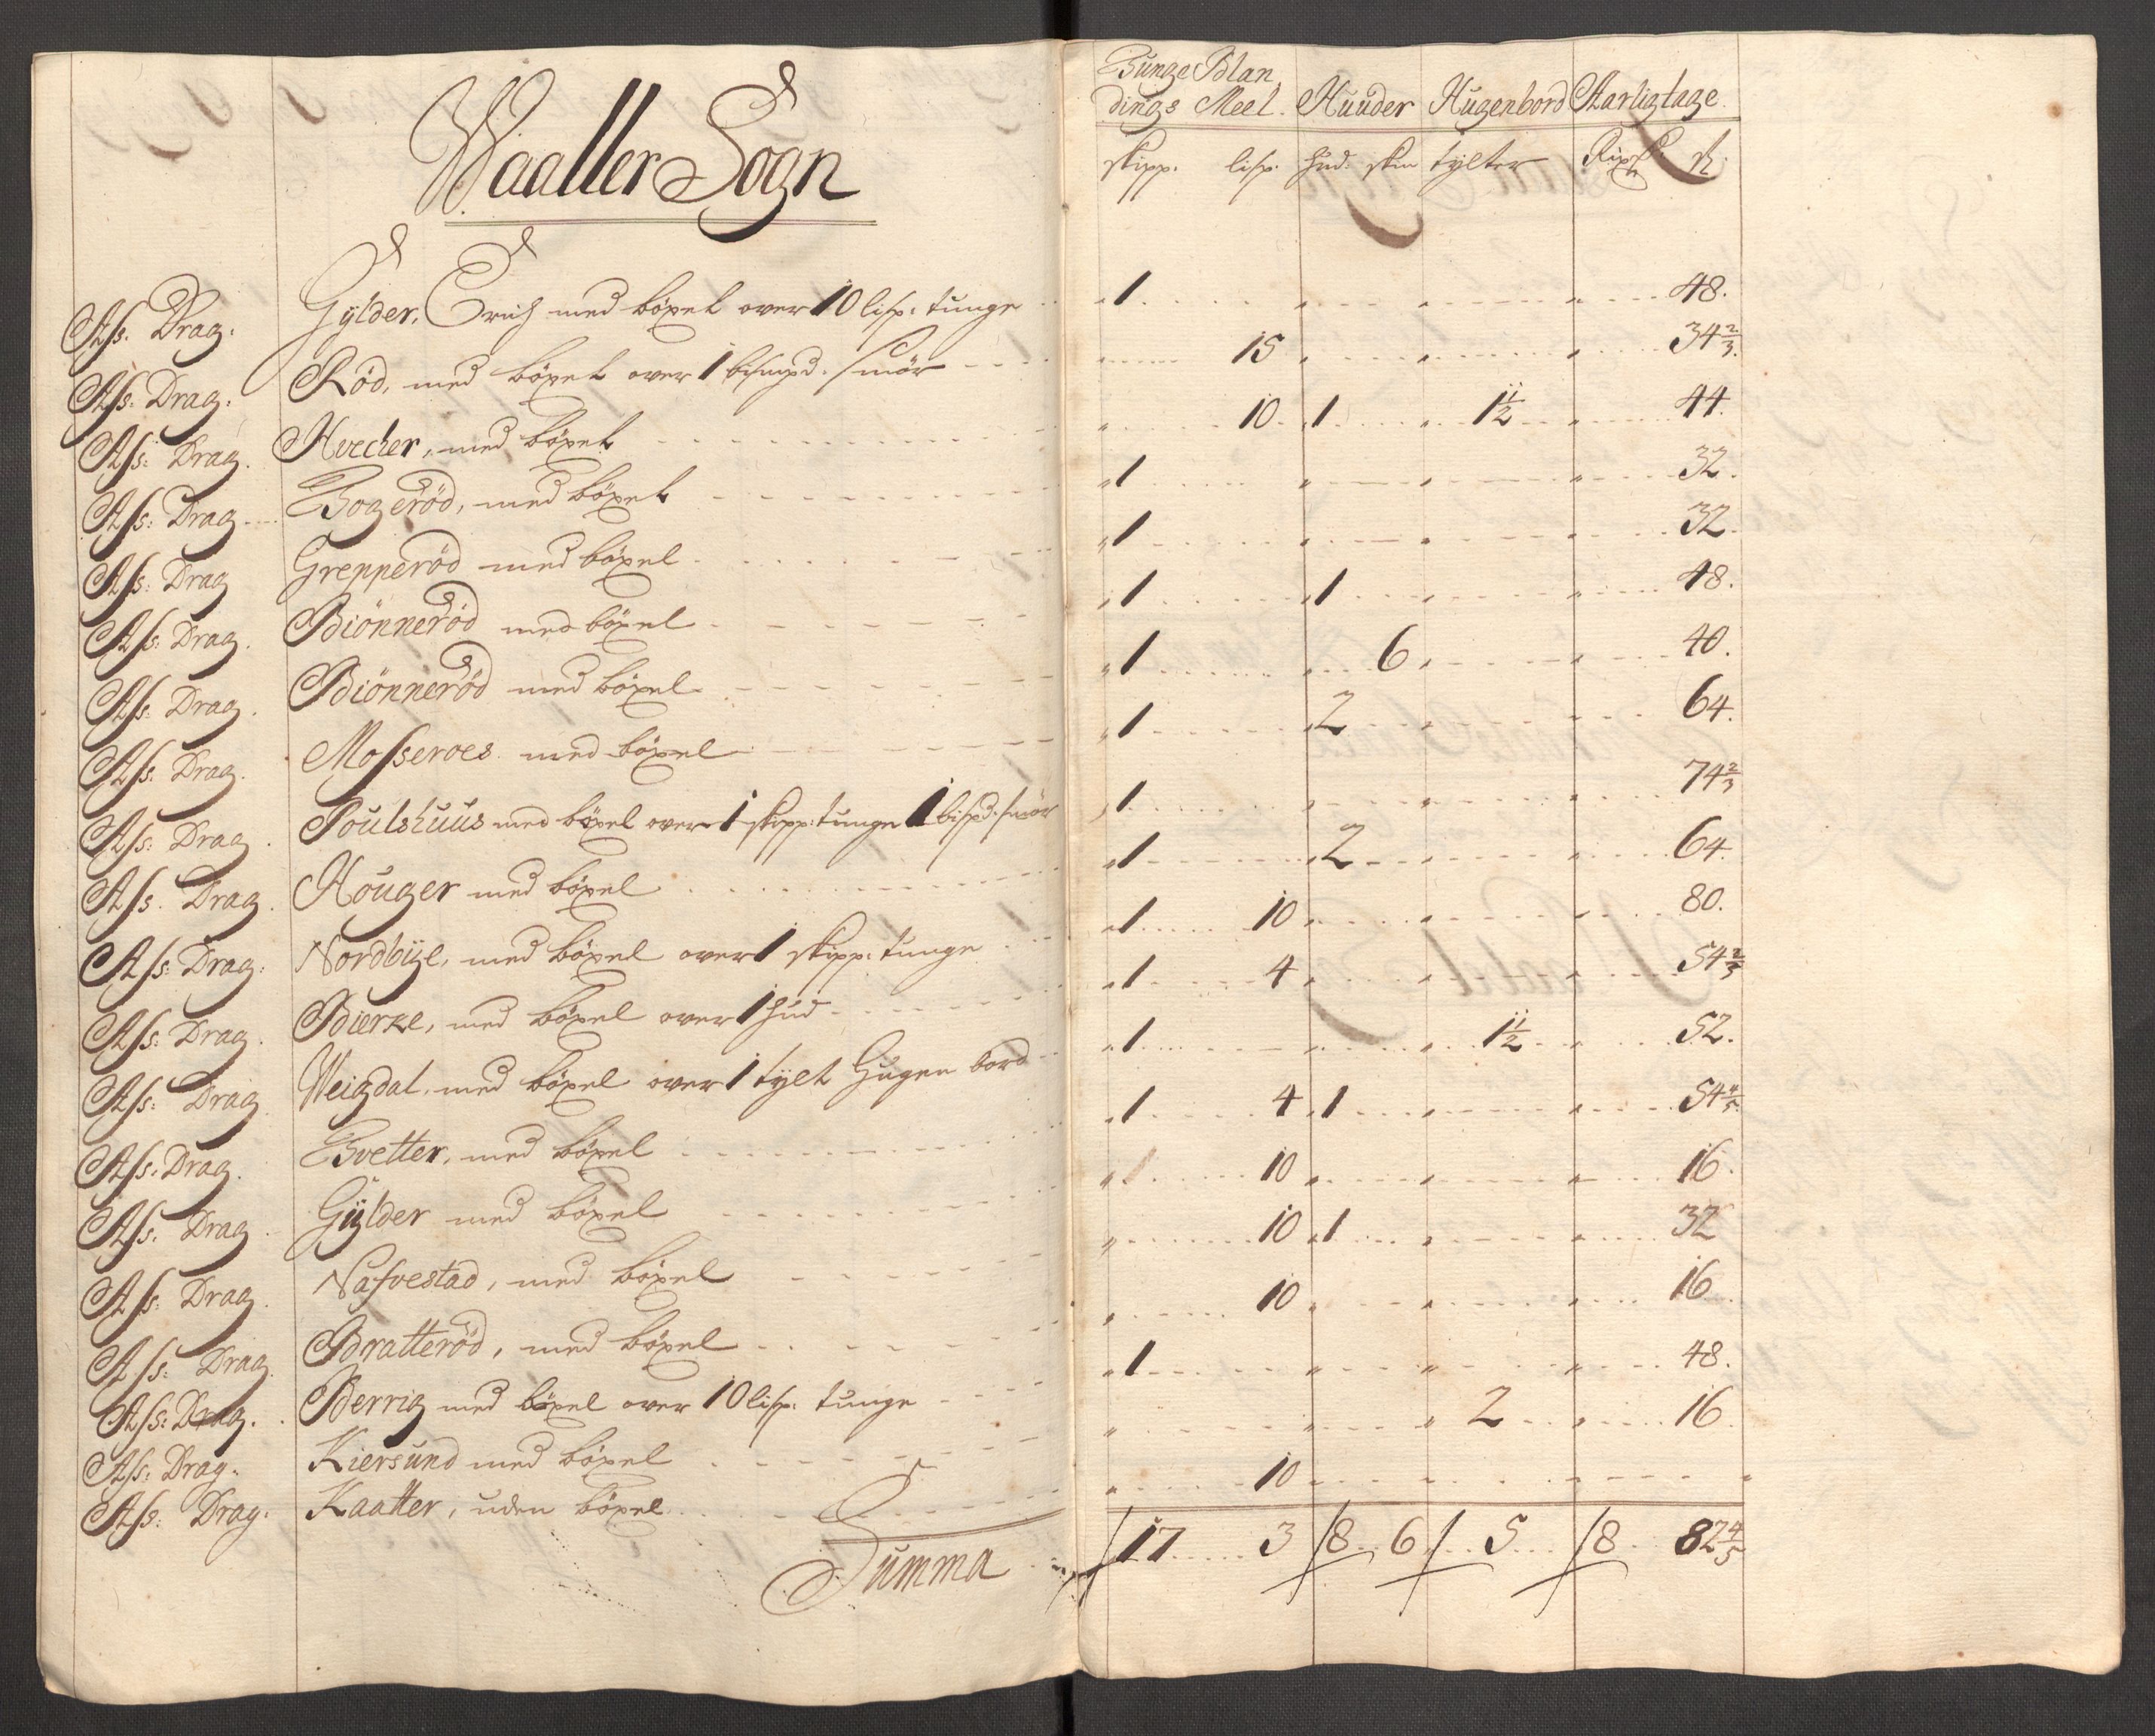 Waaller Sogn
Tunge Blan
dings Meel. Huuder Hugenbord Aarligtage.
skipp. lisp. Hud: skin tylter Rixd. ß.
Ass. Drag: Gylder, Erich med böxel over 10 lisp: tunge 1 48.
Ass: Drag: Röd, med böxel over 1 bismpd. smör 15 34 2/3.
Ass: Drag. Hvecher, med böxel 10. 1 1 1/2 44.
Ass: Drag Togeröd, med böxel 1 32.
Ass: Drag Grepperöd med böxel 1 32.
Ass: Drag. Biönneröd med böxel 1 1 48.
Ass: Drag. Biönneröd med böxel 1 6 40.
Ass: Drag. Mosseroes med böxel 1 2 64.
Ass: Drag. Poulshuus med böxel over 1 skipp: tunge 1 bispd: smör 1 74 2/3
Ass. Drag. Houger med böxel 1 2 64.
Ass: Drag: Nordbye, med böxel over 1 skipp: tunge 1 10 80.
Ass: Drag. Bierke, med böxel over 1 hud 1 4 54 2/3
Ass: Drag Weigdal, med böxel over 1 tylt Hugen bord 1 1 1/2 52.
Ass: Drag. Tvetter, med böxel 1 4 1 54 4/5
Ass: Drag Gylder med böxel 10 16.
Ass: Drag. Nafvestad, med böxel 10 1 32
Ass: Drag. Bratteröd, med böxel 10 16
Ass: Drag. Berrig med böxel over 10 lisp: tunge 1 48.
Ass: Drag. Kiersund med böxel 2 16.
Ass: Drag: Kaatter, uden böxel 10
Summa 17 3 8 6 5 8 82 4/5